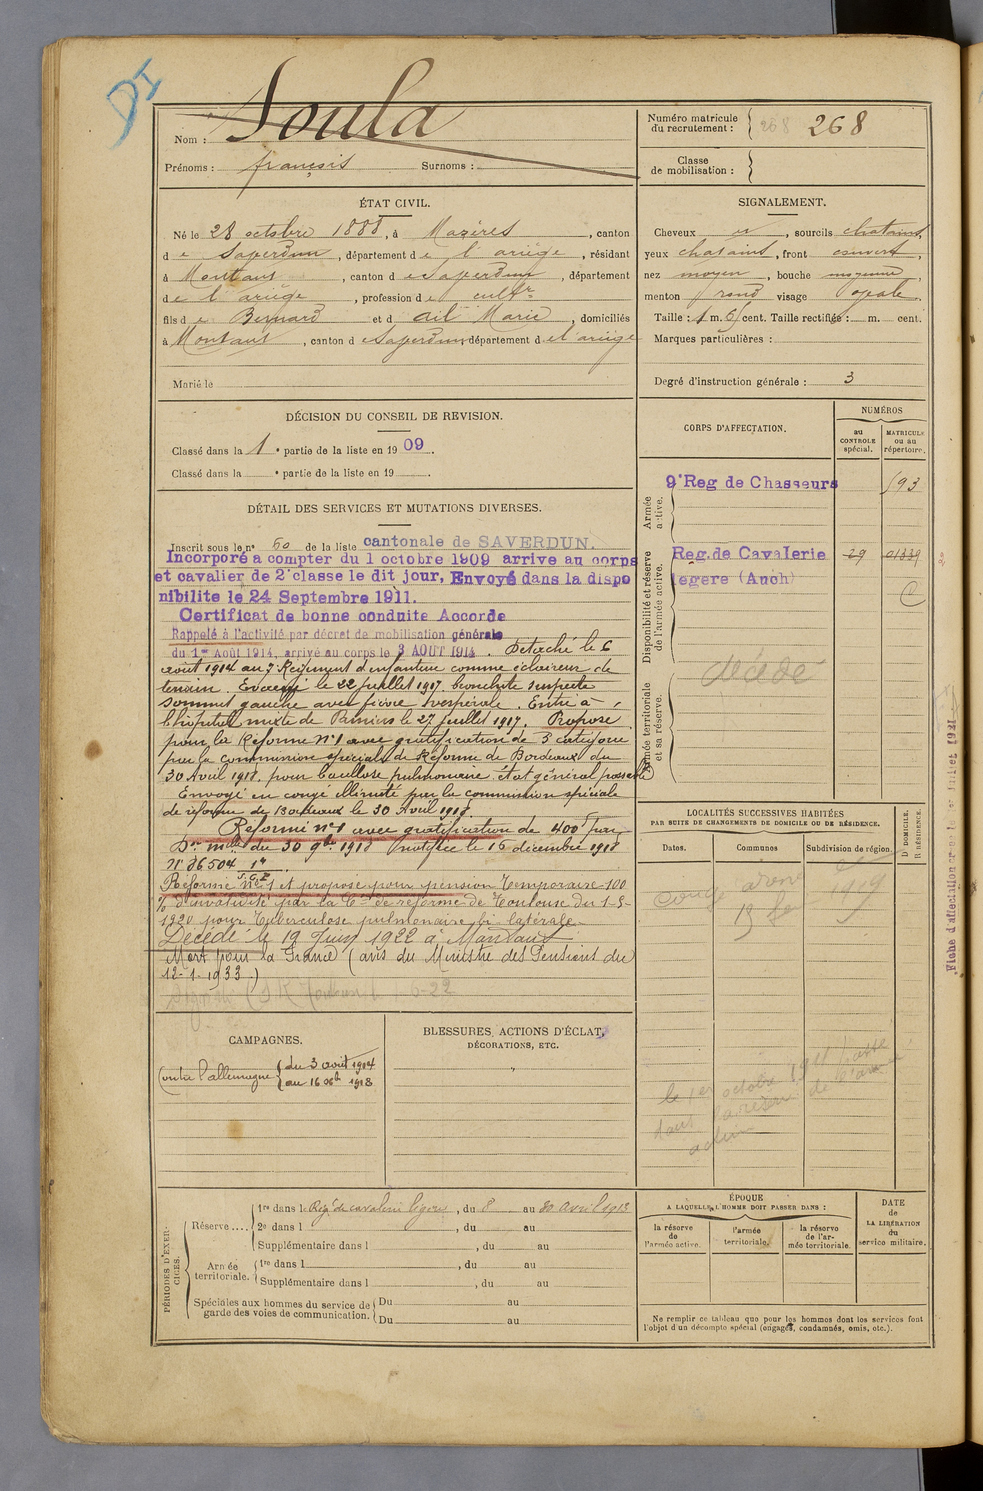 DI
Nom : Soula
Prénoms : françois Surnoms :
Numéro matricule
du recrutement : 268 268
Classe
de mobilisation :
ÉTAT CIVIL.
Né le 28 octobre 1888, à Mazères, canton
de Saverdun, département de l'ariège, résidant
à Montaut, canton de Saverdun, département
de l'ariège, profession de cultr
fils de Bernard et d ail Marie, domiciliés
à Montaut, canton de Saverdun, département de l'ariège
Marié le
SIGNALEMENT.
Cheveux et, sourcils chatains,
yeux chatains, front couvert,
nez moyen, bouche moyenne,
menton rond visage ovale.
Taille : 1 m. 6 cent. Taille rectifiée : m. cent.
Marques particulières :
Degré d'instruction générale : 3
DÉCISION DU CONSEIL DE REVISION.
Classé dans la 1e partie de la liste en 1909.
Classé dans la e partie de la liste en 19 .
CORPS D'AFFECTATION.
NUMÉROS
au
CONTROLE
spécial.
MATRICULE
ou au
répertoire.
Armée
active.
9e Reg de Chasseurs 193
Disponibilité et réserve
de l'armée active.
Reg. de Cavalerie 29 01339
légère (Auch)
C
Armée territoriale
et sa réserve.
décédé
DÉTAIL DES SERVICES ET MUTATIONS DIVERSES.
Inscrit sous le n° 60 de la liste cantonale de SAVERDUN.
Incorporé a compter du 1 octobre 1909 arrive au corps
et cavalier de 2e classe le dit jour, Envoyé dans la dispo
nibilite le 24 Septembre 1911.
Certificat de bonne conduite Accorde
Rappelé à l'activité par décret de mobilisation générale
du 1er Août 1914, arrivé au corps le 3 AOUT 1914. Détaché le 6
août 1914 au 7 Régiment d'infanterie comme éclaireur de
terrain. Evacué le 22 juillet 1917. bronchite suspecte
sommet gauche avec fièvre vespérale. Entré à
l'hôpital mixte de Pamiers le 27 juillet 1917. Proposé
pour la Réforme N°1 avec gratification de 5 catégorie
par la commission spéciale de Réforme de Bordeaux du
30 Avril 1918. pour bacillose pulmonaire, état général passable
Envoyé en congé illimité par la commission spéciale
de réforme de Bordeaux le 30 Avril 1918.
Réformé n°1 avec gratification de 400 frs
Don mlle du 30 9bre 1918 notifiée le 16 décembre 1918
N° 36504 1e
Réformé N°1 et proposé pour pension Temporaire 100
% d'invalidité par la Con de réforme de Toulouse du 1-9-
1920 pour Tuberculose pulmonaire bi latérale
Décédé le 19 Juin 1922 à Montaut
Mort pour la France (avis du Ministre des Pensions du
12-1-1933)
LOCALITÉS SUCCESSIVES HABITÉES
PAR SUITE DE CHANGEMENTS DE DOMICILE OU DE RÉSIDENCE.
Dates.
Communes
Subdivision de région.
D DOMICILE.
R RÉSIDENCE.
1919
le 1er octobre 1911 passe
dans la réserve de l'armée
active
CAMPAGNES.
Contre l'allemagne du 3 août 1914
au 16 1918
BLESSURES, ACTIONS D'ÉCLAT,
DÉCORATIONS, ETC.
PÉRIODES D'EXER-
CICES.
Réserve .... 1re dans le Régt de cavalerie légère, du 8 au 30 avril 1913
2e dans l , du au
Supplémentaire dans l , du au
Armée
territoriale. 1re dans l , du au
Supplémentaire dans l , du au
Spéciales aux hommes du service de
garde des voies de communication. Du au
Du au
ÉPOQUE
A LAQUELLE L'HOMME DOIT PASSER DANS :
la réserve
de
l'armée active.
l'armée
territoriale.
la réserve
de l'ar-
mée territoriale.
DATE
de
LA LIBÉRATION
du
service militaire.
Ne remplir ce tableau que pour les hommes dont les services font
l'objet d'un décompte spécial (engagés, condamnés, omis, etc.).